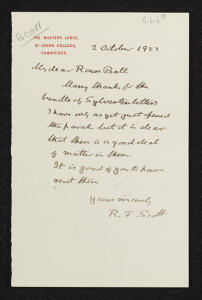 Scott
THE MASTER'S LODGE,
ST JOHN'S COLLEGE,
CAMBRIDGE.
2 October 1923
My dear Rouse Ball
Many thanks for the
bundle of Sylvester letters
I have only as yet just opened
the parcel but it is clear
that there is a good deal
of matter in them
It is good of you to have
sent them
Yours sincerely
R. F. Scott